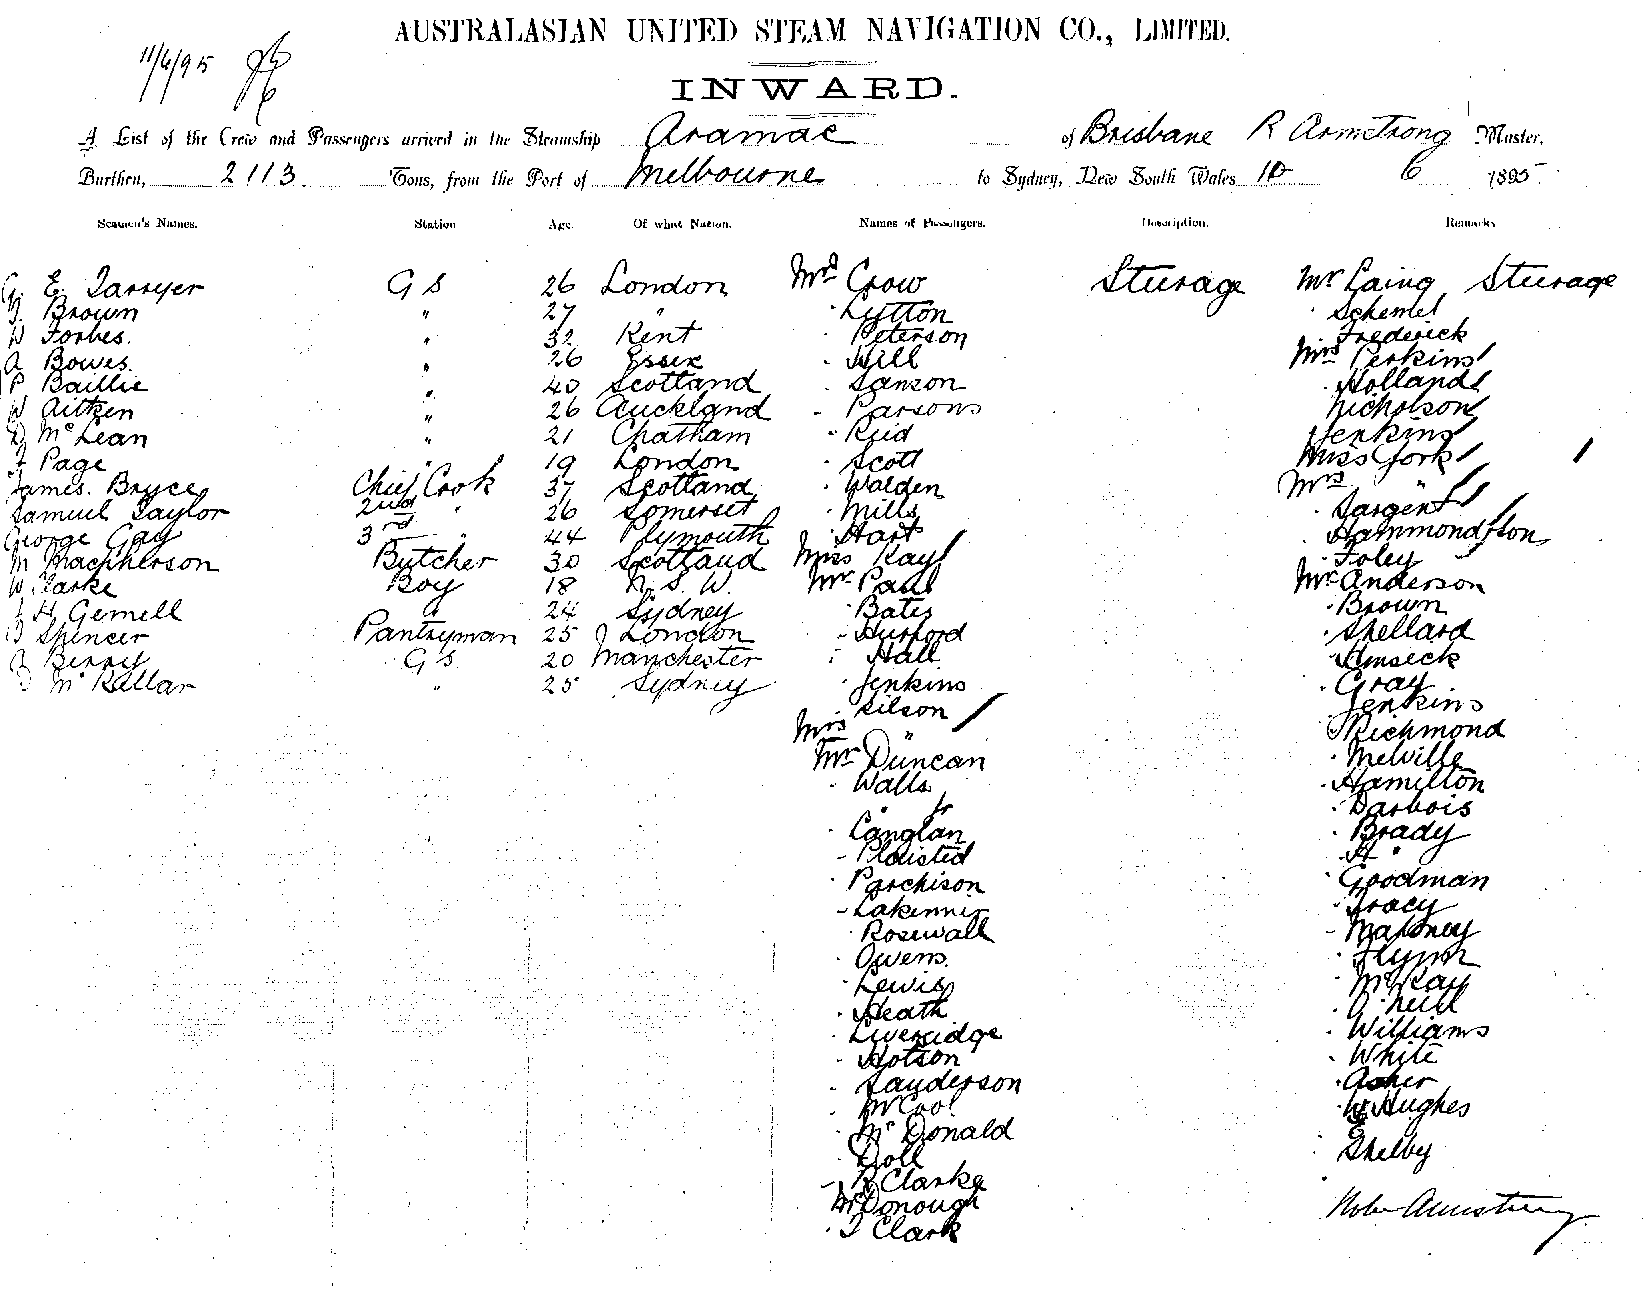 AUSTRALASIAN UNITED STEAM NAVIGATION CO., LIMITED.
11/6/95
INWARD.
A List of the Crew and Passengers arrived in the Steamship Aramac of Brisbane R Armstrong Master,
Burthen, 2113 Tons, from the Port of Melbourne to Sydney, New South Wales 10 6 1895
Seamen's Names. Station Age. Of what Nation. Names of Passengers. Description. Remarks
E. Tarryer G S 26 London Mrs Crow Steerage Mr Laing Steerage
Brown " 27 " · Lytton · Schemel
Forbes. " 32 Kent · Peterson · Frederick
A Bowes. " 26 Essex · Hill Mrs Perkins
P Baillie " 40 Scotland · Samson · Holland
W Aitken " 26 Auckland - Parsons Nicholson
D McLean " 21 Chatham · Reid Jenkins
Page " 19 London · Scott Miss York
James. Bryce Chief Cook 37 Scotland · Walden Mrs "
Samuel Taylor 2nd " 26 Somerset · Mills · Sargent
George Gay 3rd " 44 Plymouth · Hart · Hammond
M Macpherson Butcher 30 Scotland Miss Kay · Foley
W. Clarke Boy 18 N. S. W. Mr Paul Mr Anderson
J H Gemell " 24 Sydney · Bates · Brown
Spencer Pantryman 25 London - Hurford · Shellard
Berry G S. 20 Manchester · Hall
McKellar " 25 Sydney · Jenkins · Gray
· Gilson · Jenkins
Mrs " Richmond
Mr Duncan · Melville
· Walls · Hamilton
" Jr · Darbois
· Langlan · Brady
- Plaisted · H "
· Parchison · Goodman
- Lakenner · Tracy
· Rosewall - Mahoney
· Owens. · Flynn
· Lewis · McKay
· Heath · O'Neill
· Liveridge · Williams
· Hotson · White
· Sanderson · Asher
· McCool · W Hughes
· McDonald
· Doll · Shelby
- R Clarke
McDonough Robt Armstrong
· T Clark